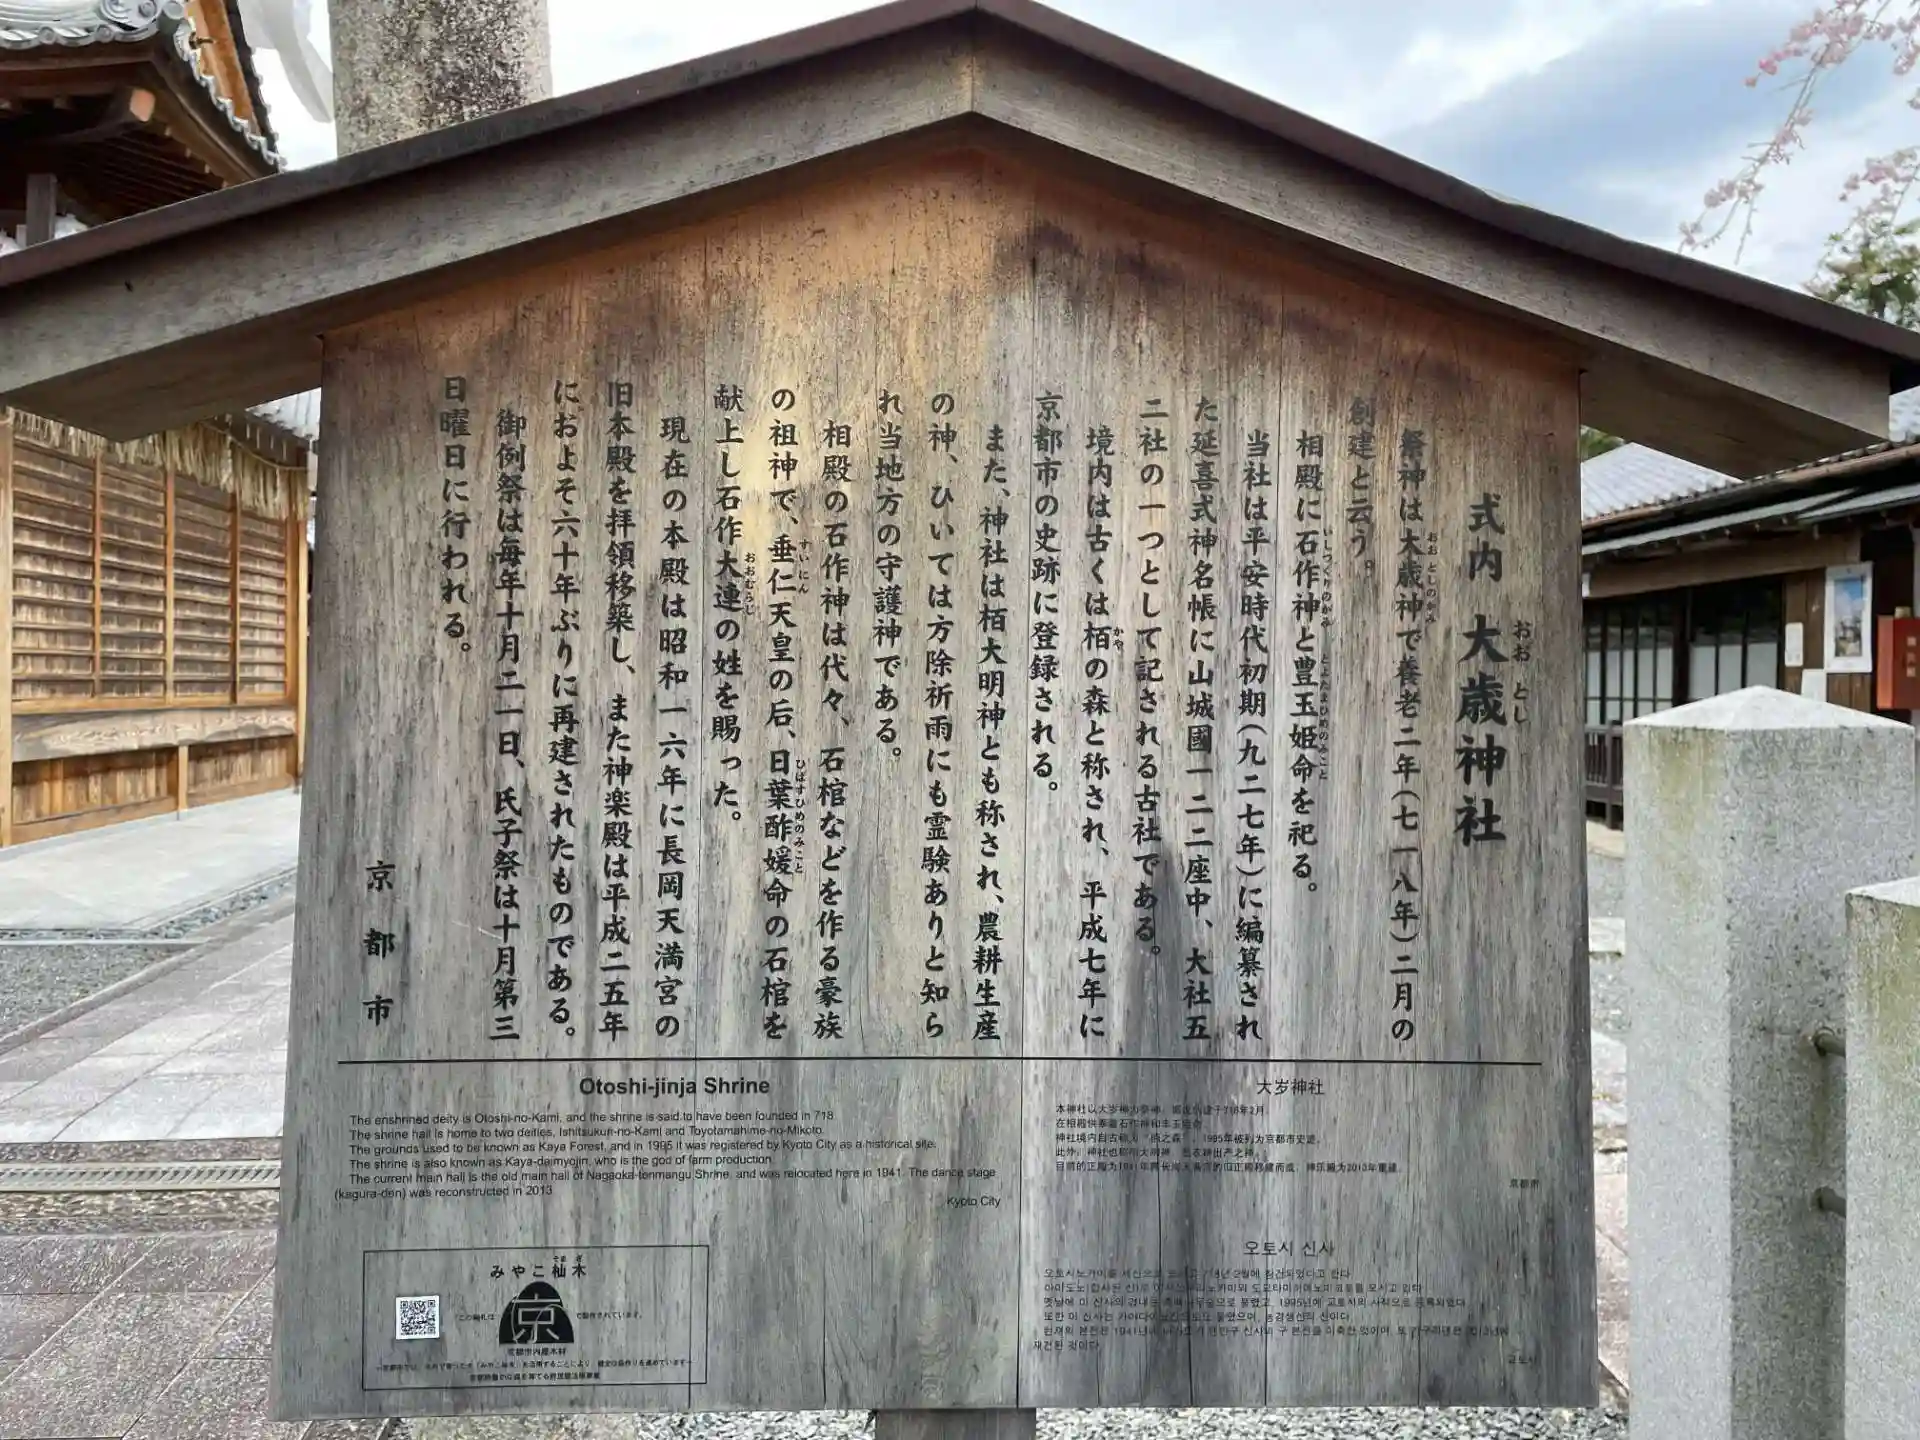 式内 大歳神社
おお とし
祭神は大歳神で養老二年(七一八年)二月の
おおとしのかみ
創建と云う。
相殿に石作神と豊玉姫命を祀る。
いしつくりのかみ とよたまひめのみこと
当社は平安時代初期(九二七年)に編纂され
た延喜式神名帳に山城國一二二座中、大社五
二社の一つとして記される古社である。
境内は古くは栢の森と称され、平成七年に
かや
京都市の史跡に登録される。
また、神社は栢大明神とも称され、農耕生産
の神、ひいては方除祈雨にも霊験ありと知ら
れ当地方の守護神である。
相殿の石作神は代々、石棺などを作る豪族
の祖神で、垂仁天皇の后、日葉酢媛命の石棺を
すいにん ひばすひめのみこと
献上し石作大連の姓を賜った。
おおむらじ
現在の本殿は昭和一六年に長岡天満宮の
旧本殿を拝領移築し、また神楽殿は平成二五年
におよそ六十年ぶりに再建されたものである。
御例祭は毎年十月二一日、氏子祭は十月第三
日曜日に行われる。
京都市
Otoshi-jinja Shrine
The enshrined deity is Otoshi-no-Kami, and the shrine is said to have been founded in 718.
The shrine hall is home to two deities, Ishitsukuri-no-Kami and Toyotamahime-no-Mikoto.
The grounds used to be known as Kaya Forest, and in 1995 it was registered by Kyoto City as a historical site.
The shrine is also known as Kaya-daimyojin, who is the god of farm production.
The current main hall is the old main hall of Nagaoka-tenmangu Shrine, and was relocated here in 1941. The dance stage
(kagura-den) was reconstructed in 2013.
Kyoto City
大岁神社
本神社以大岁神为祭神,
在相殿供奉着石作神和
神社境内自古 1995年被列为京都市史迹。
此外,神社也
目前的正殿为1941年 的旧正殿移建而成,神乐殿为2013年重建。
京都市
오토시 신사
오토시노카미를 제신으로 718년 2월에 창건되었다고 한다.
1995년에 교토시의 사적으로 등록되었다.
교토시
みやこ杣木
そま ぎ
この駒札は
京
で製作されています。
京都市内産木材